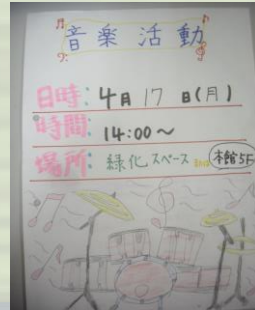 音楽活動
日時:4月17日(月)
時間:14:00〜
場所:緑化スペース 本館5F